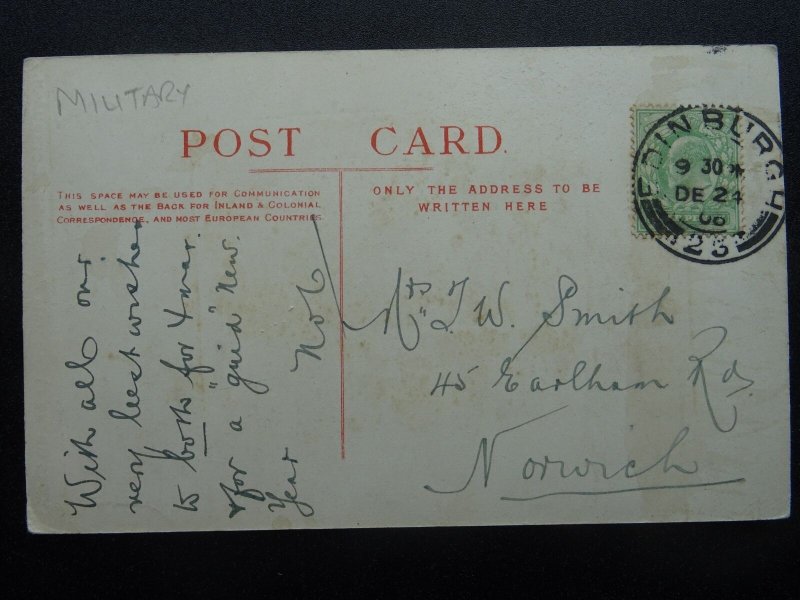 MILITARY
POST CARD.
THIS SPACE MAY BE USED FOR COMMUNICATION
AS WELL AS THE BACK FOR INLAND & COLONIAL
CORRESPONDENCE, AND MOST EUROPEAN COUNTRIES.
ONLY THE ADDRESS TO BE
WRITTEN HERE
EDINBURGH
9 30
DE 24
06
23
With all our
very best wishes
to both for Xmas.
& for a "guid" New
Year
Mrs J. W. Smith
45 Earlham Rd.
Norwich